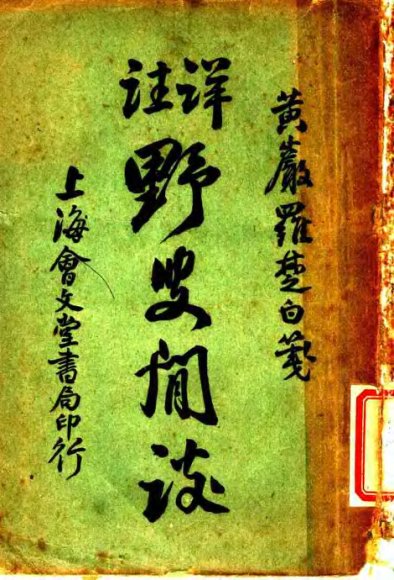 黃巖羅楚白箋
詳註
野叟閒談
上海會文堂書局印行